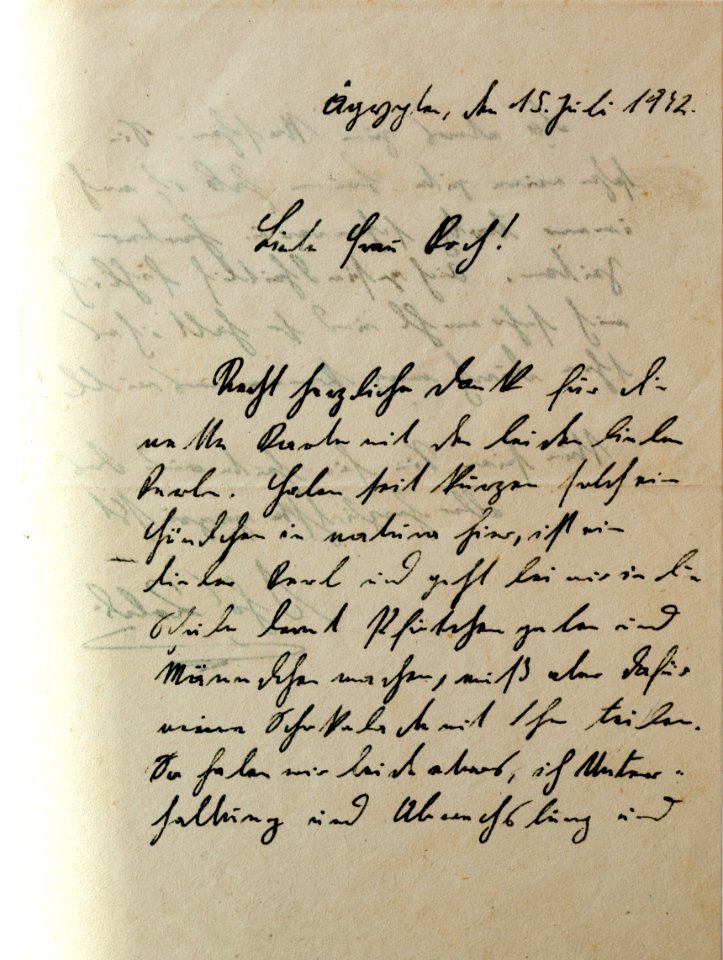 Ägypten, den 15. Juli 1942.
Liebe Frau Koch!
Recht herzlichen Dank für die
nette Karte mit den beiden lieben
Kerln. Haben seit kurzem solch ein
Hündchen in natura hier, ist ein
lieber Kerl und geht bei mir in die
Schule lernt Pfötchen geben und
Männchen machen, muß aber dafür
meine Schokolade mit ihm teilen.
So haben wir beide etwas, ich Unter-
haltung und Abwechslung und